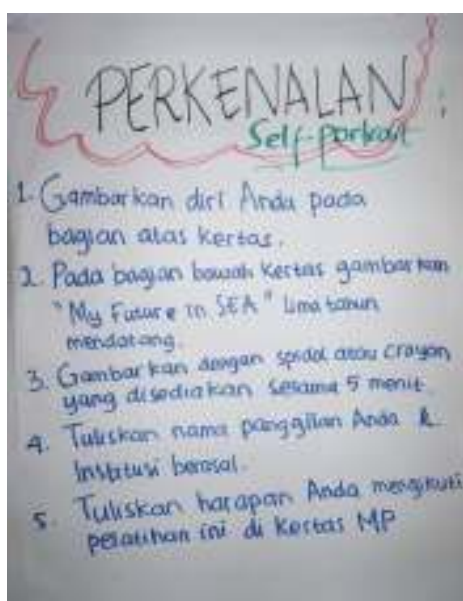 PERKENALAN :
Self-Portrait
1. Gambarkan diri Anda pada
bagian atas kertas.
2. Pada bagian bawah kertas gambarkan
"My Future in SEA" lima tahun
mendatang.
3. Gambarkan dengan spidol atau crayon
yang disediakan selama 5 menit.
4. Tuliskan nama panggilan Anda &
Institusi berasal.
5. Tuliskan harapan Anda mengikuti
pelatihan ini di kertas MP